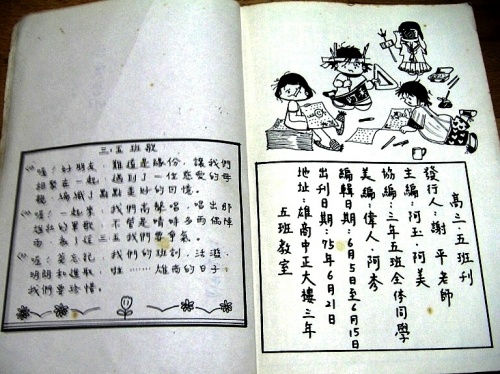 三.五班歌
喔！好朋友 難道是緣份，讓我們
相聚在一起 遇到了一位慈愛的母
親，編織了點點美妙的回憶。
喔！一起來 我們高聲唱，唱出那
雄壯的軍歌 不管是晴時多雨偶陣
雨 三五我們要爭氣。
喔！莫忘記 我們的班訓，活潑
明朗和進取 ……雄商的日子，
我們要珍惜。
高三.五班刊
發行人：謝 平老師
主編：阿玉.阿美
協編：三年五班全体同學
美編：偉人.阿秀
編輯日期：6月5日至6月15日
出刊日期：75年6月21日
地址：雄商中正大樓三年
五班教室